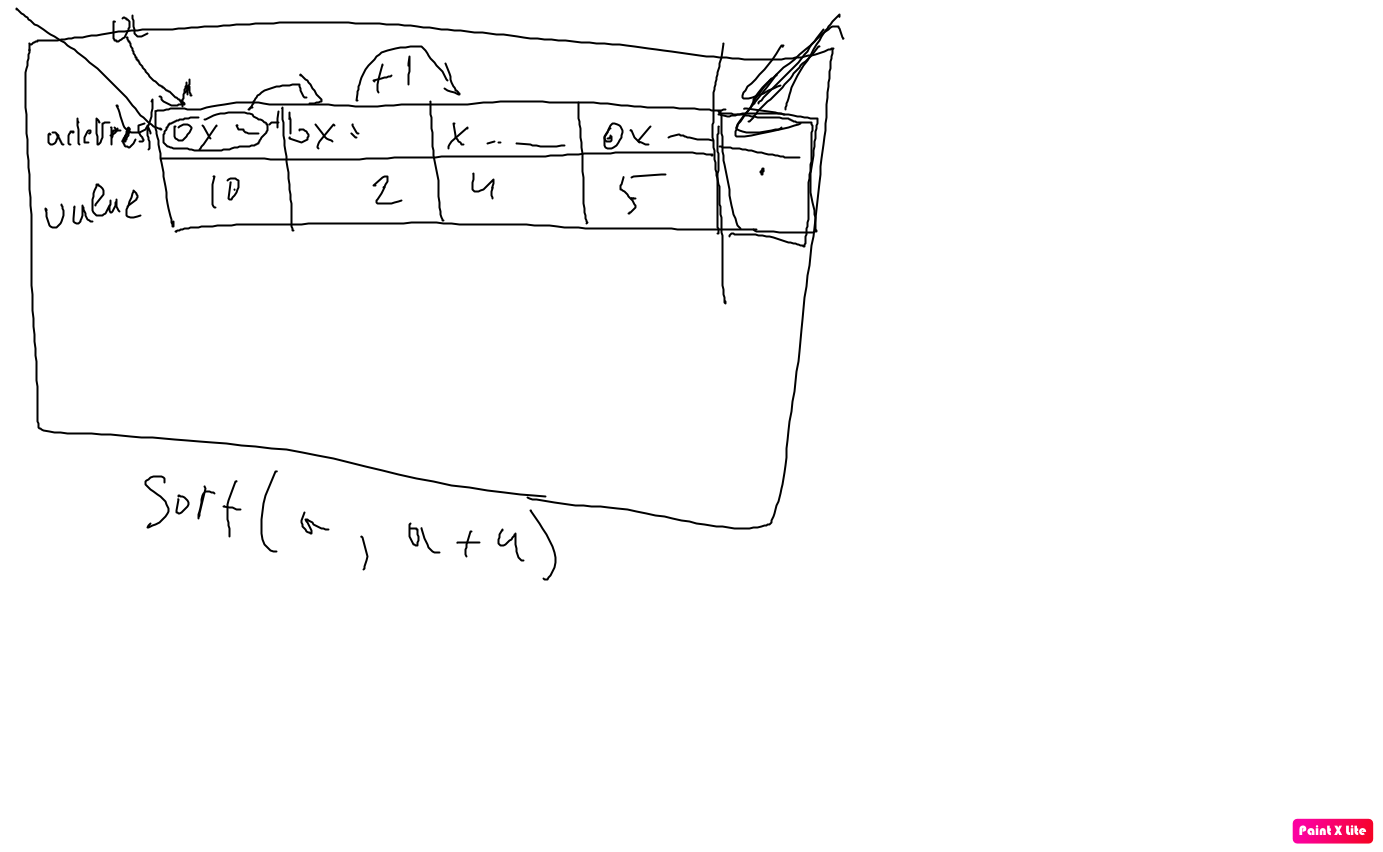 a
+1
address 0x 0x x 0x
value 10 2 4 5
Sort(a, a+4)
Paint X Lite